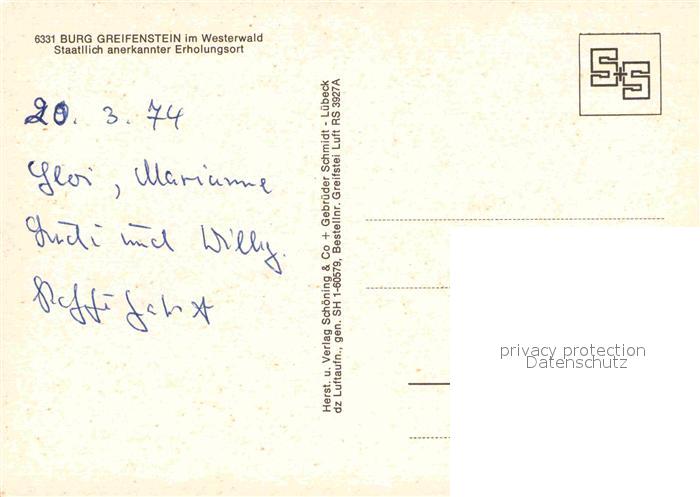 6331 BURG GREIFENSTEIN im Westerwald
Staatllich anerkannter Erholungsort
S+S
20. 3. 74
Marianne
und Willy.
Herst. u. Verlag Schöning & Co + Gebrüder Schmidt - Lübeck
dz Luftaufn., gen. SH 1-60579, Bestellnr. Greifstei Luft RS 3927A
privacy protection
Datenschutz